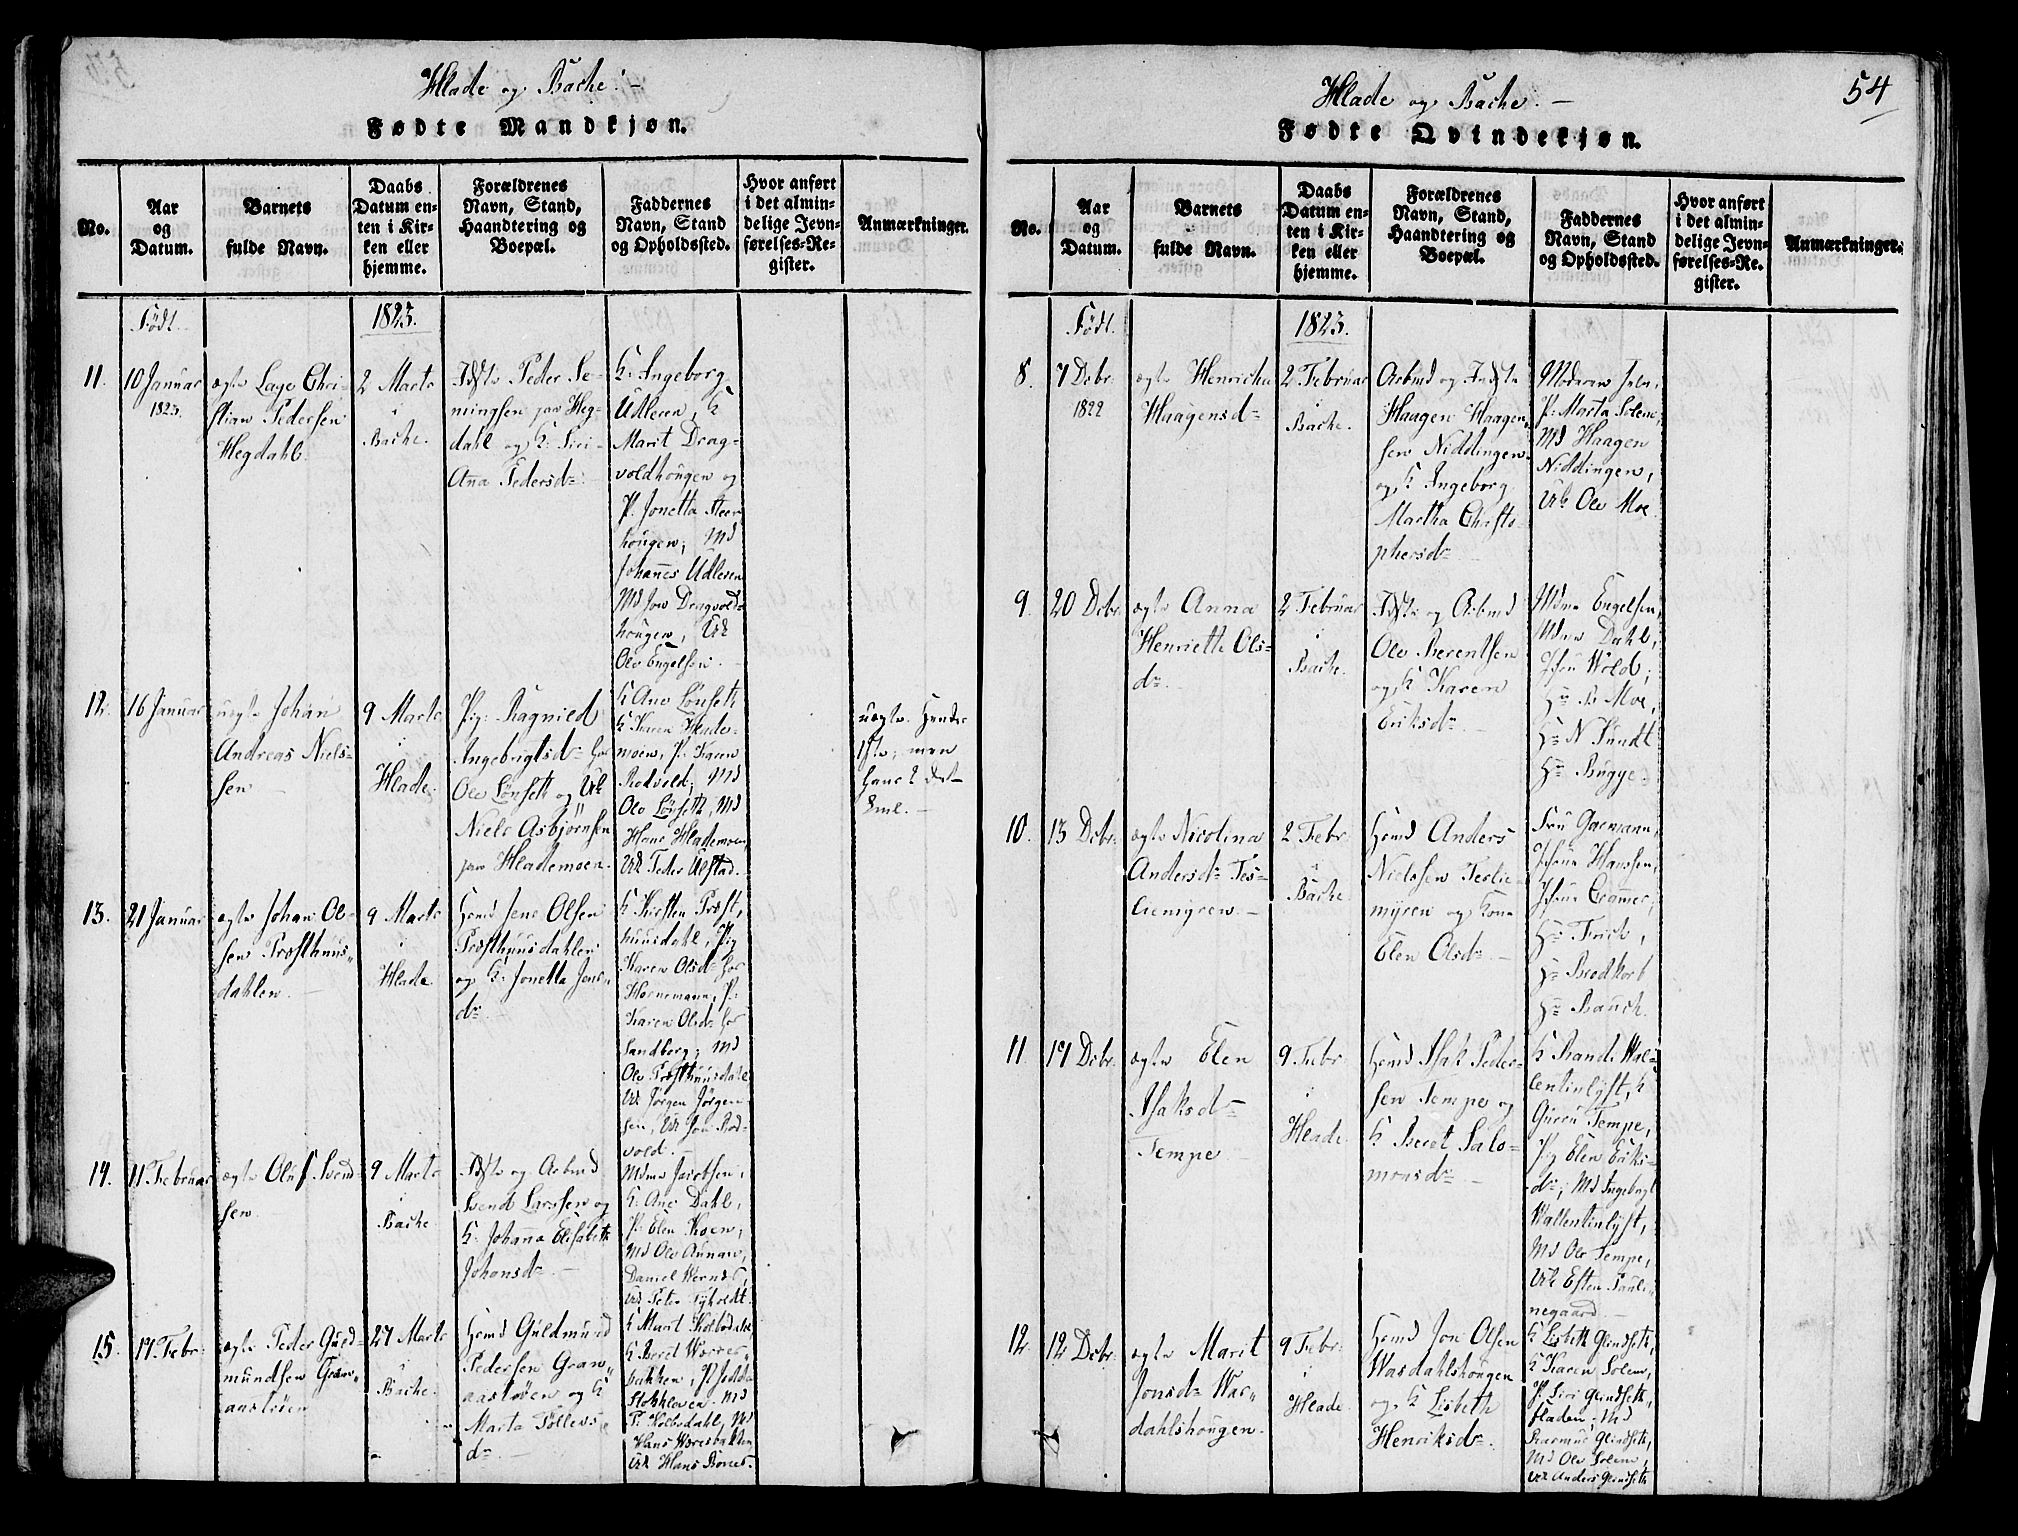 Hlade og Bache. -
Fødte Mandkjøn.
No.
Aar
og
Datum.
Barnets
fulde Navn.
Daabs
Datum en-
ten i Kir-
ken eller
hjemme.
Forældrenes
Navn, Stand,
Haandtering og
Boepæl.
Faddernes
Navn, Stand
og Opholdssted.
Hvor anført
i det almin-
delige Jevn-
førelses-Re-
gister.
Anmærkninger.
Født
1823.
11.
10 Januar
1823.
ægte Lage Chri-
stian Pedersen
Hegdahl
2 Marts
i
Bache.
Indste Peder He-
mingsen paa Heg-
dahl og K: Siri
Ana Pedersd
K: Ingeborg
Udleren, K
Marit Drag-
voldhougen og
P. Jonetta Steen
hougen; Md
Johannes Udleren
Md Jon Dragvolds
hougen, Uk
Ole Engelsen.
12.
16 Januar
uægte Johan
Andreas Niels-
sen
9 Marts
i
Hlade.
Pig: Ragnild
Ingebrigtsd for
Ole Lønseth og Uk
Niels Asbjørnsen
paa Hlademoen.
K Ane Lønseth
K Karen Hlade-
moen, P. Karen
Rokvold; Md
Ole Lønseth, Md
Hans Hlademoen
Uk Peder Ulstad.
uægte. Hendes
1ste, men
hans 2det
13.
21 Januar
ægte Johan Ol-
sen Presthuus-
dahlen
9 Marts
i
Hlade
Hsmd Jens Olsen
Presthuusdahlen
og K: Jonetta Jens
d
K Kirsten Prest-
huusdahl, Pig
Karen Olsd for
Hornemann, P:
Karen Olsd for
Sandborg; Md
Ole Presthuusdahl
Uk Jørgen Jørgen-
sen, Uk Jon Rok-
vold.
14.
11 Februar
ægte Oluf Svend
sen
9 Marts
i
Bache
Indste og Arbmd
Svend Larssen og
K. Johanna Elisabeth
Johansd
Mdme Jacobsen,
K: Ane Dahl,
P: Elen Koen;
Md Ole Aunan,
Daniel Wernes,
Uk Peter Tyholdt.
15.
17 Febr.
ægte Peder Guld-
mundsen Gran-
aasløen
27 Marts
i
Bache.
Hsmd Guldmund
Pedersen Gran-
aasløen og K
Marta Tollevs
d
K Marit Kolbsdahl
K Beret Wærres-
bakken, P
Stokkleven. Md
P. Kolbsdahl, Md
Hans Wæresbakken
Uk Hans Rones.
Hlade og Bache. -
54
Fødte Qvindekjøn.
No.
Aar
og
Datum.
Barnets
fulde Navn.
Daabs
Datum en-
ten i Kir-
ken eller
hjemme.
Forældrenes
Navn, Stand,
Haandtering og
Boepæl.
Faddernes
Navn, Stand
og Opholdssted.
Hvor anført
i det almin-
delige Jevn-
førelses-Re-
gister.
Anmærkninger.
Født.
1823.
8.
7 Debr.
1822
ægte Henricha
Haagensd
2 Februar
i
Bache.
Arbmd og Indste
Haagen Haagen-
sen Niddingen
og K Ingeborg
Martha Christo-
phersd
Moderen
P. Marta Solem,
Md Haagen
Niddingen,
Uk Ole Moe
9.
20 Debr.
ægte Anna
Henriette Ols-
d
2 Februar
i
Bache.
Indste og Arbmd
Ole Berentsen
og K Karen
Eriksd
Mdme Engelsen,
Mdme Dahl,
Jfru Wold;
Hr B Moe,
Hr N Sundt
Hr Bugge.
10.
13 Debr.
ægte Nicolina
Andersd Tes-
liemyren
2 Febr.
i
Bache.
Hsmd Anders
Nielssen Teslie-
myren og Kone
Elen Olsd
Fru Garmann,
Jfru Hanssen,
Jfru Cramer;
Hr Frick,
Hr Brodkorb
Hr Bauck.
11.
17 Debr.
ægte Elen
Isaksd
Tempe
9 Febr.
i
Hlade.
Hsmd Isak Peder-
sen Tempe og
K Beret Salo-
monsd
K Randi Wal-
lentinlyst, K
Guru Tempe,
Pig Elen Eriks-
d; Md Ingebrigt
Wallentinlyst,
Md Ole Tempe,
Uk Esten Pauli-
negaard
12
12 Debr.
ægte Marit
Jonsd War-
dahlshougen.
9 Febr.
i
Hlade.
Hsmd Jon Olsen
Wasdahlshougen
og K Lisbeth
Henriksd.
K Lisbeth Glendseth,
K Karen Solem,
P. Siri Glendseth,
Hladen; Md
Rasmus Glendseth,
Md Ole Solem,
Uk Anders Glendseth